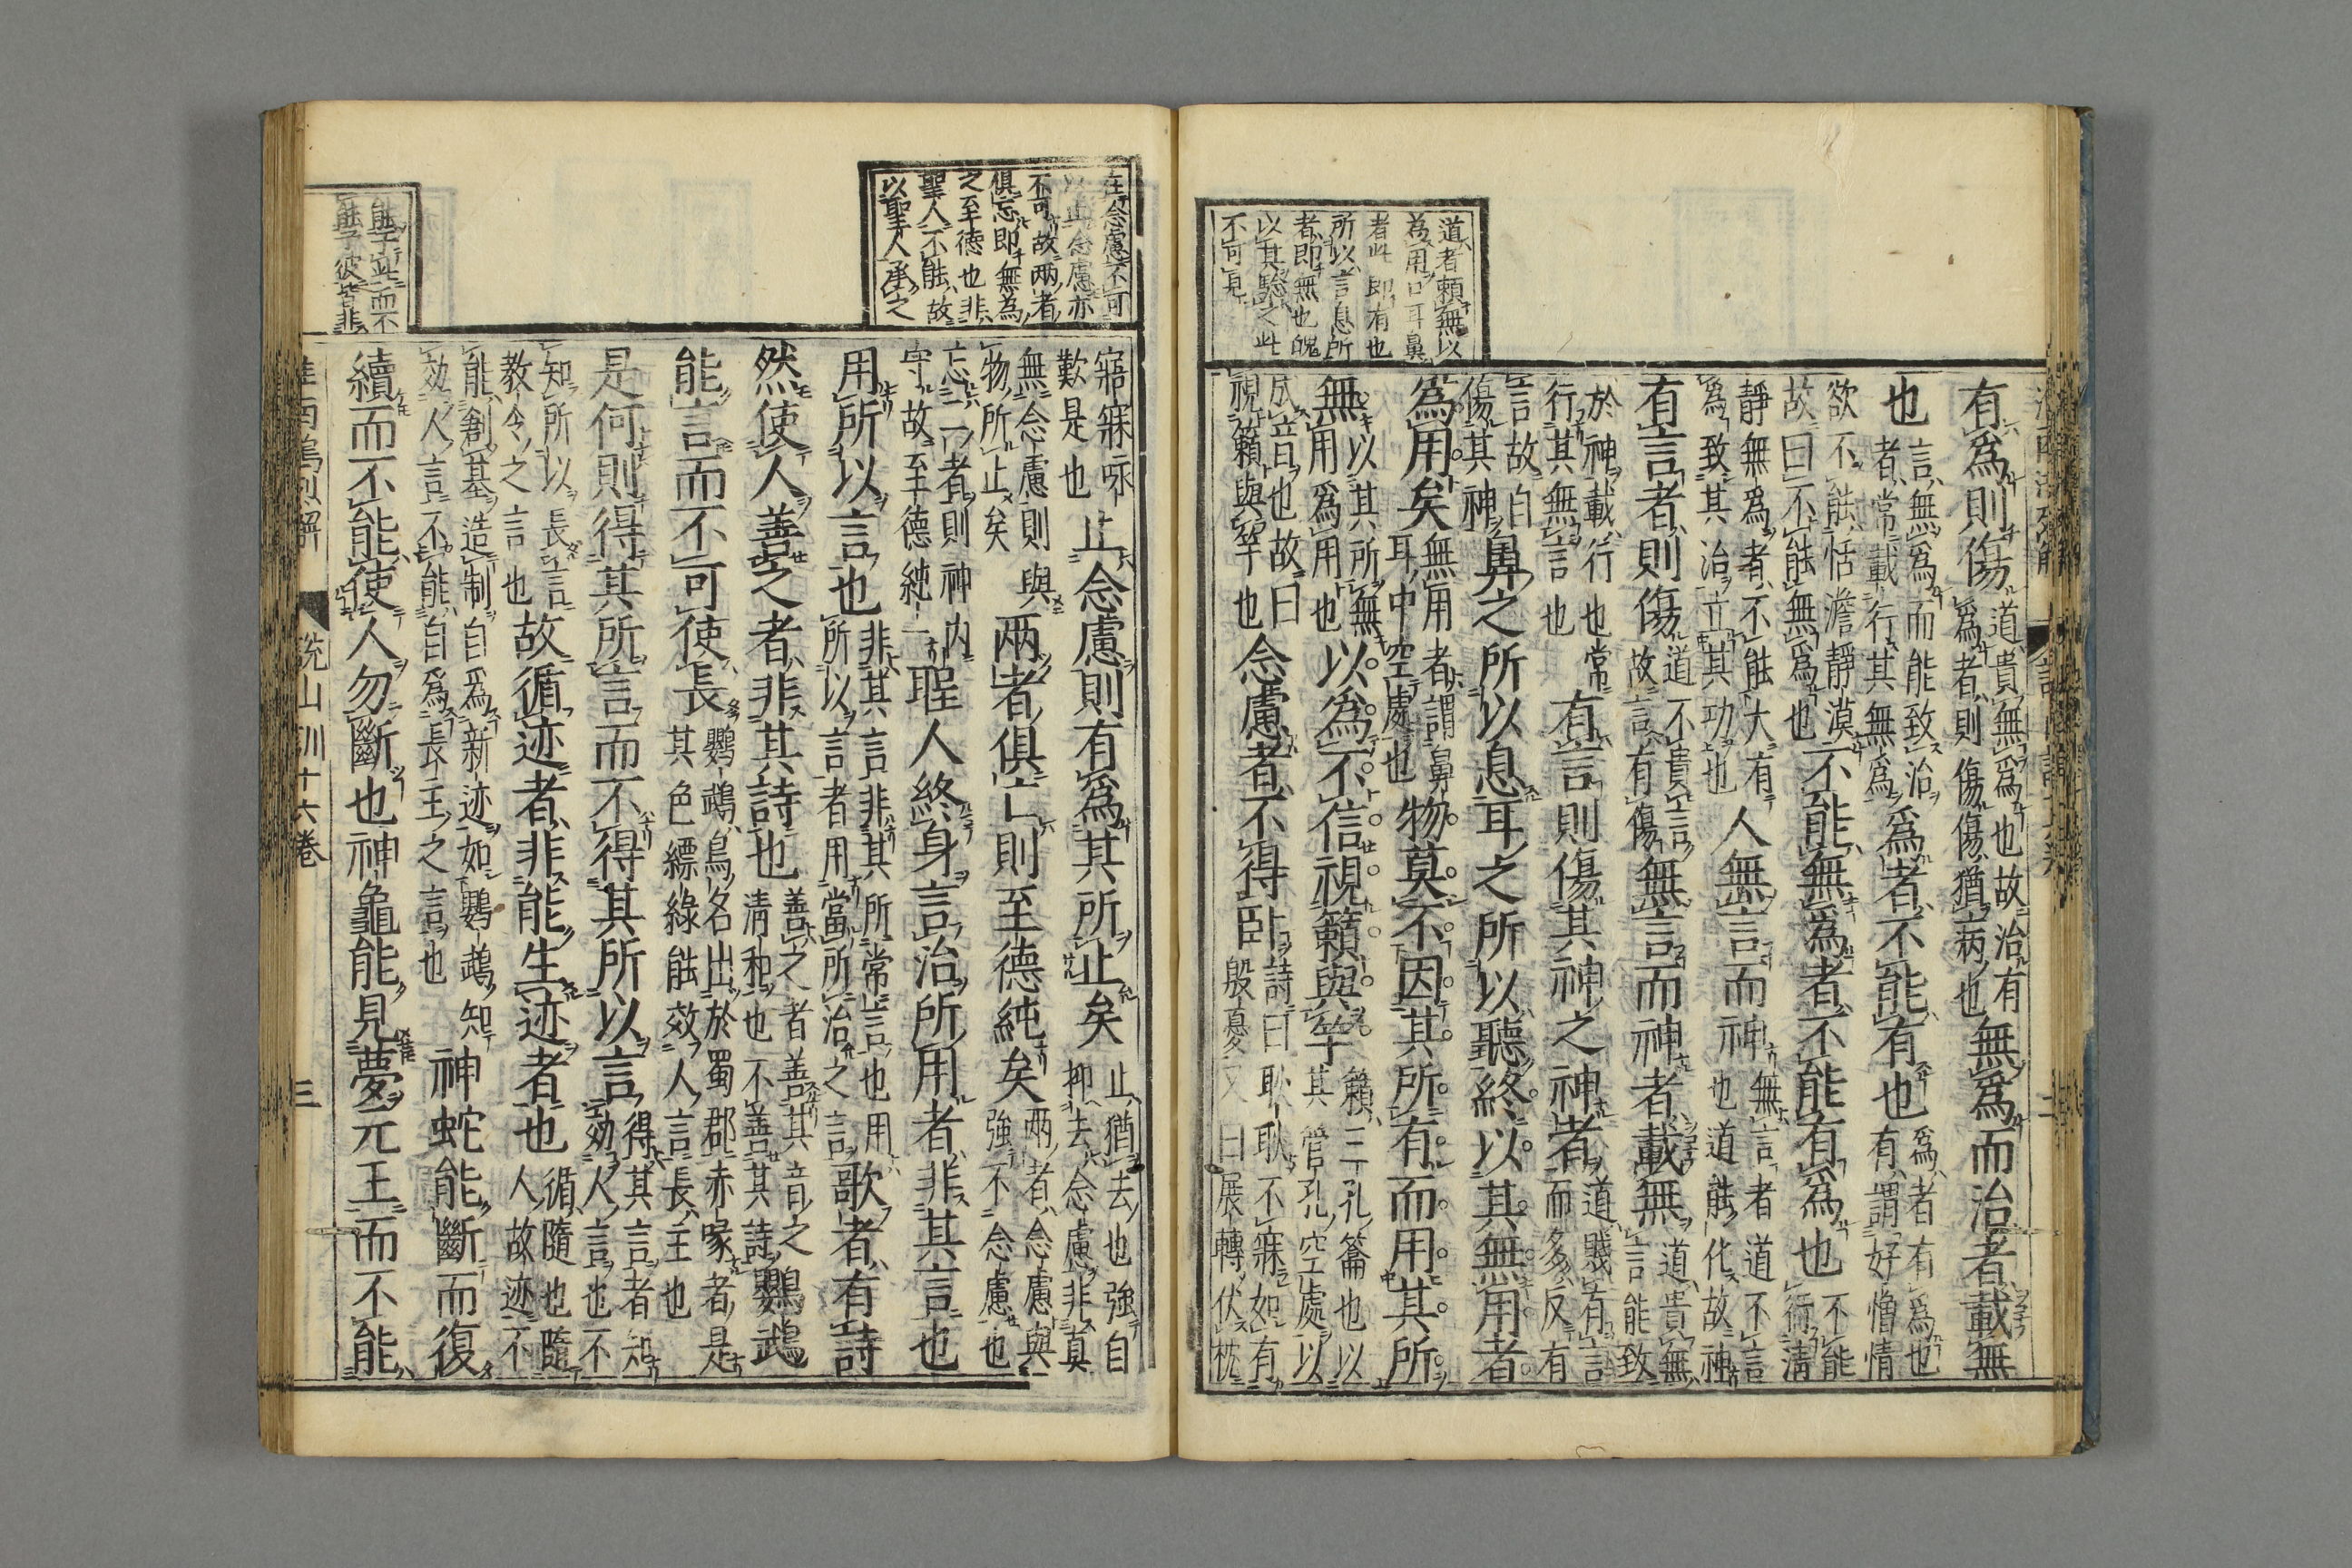 道者頼無以
為用口耳鼻
者此即有也
所以言息所
者即無也魄
以其驗之此
不可見
有爲則傷
道貴無爲也故治有
爲者則傷傷猶病也
無爲而治者載無
也
言無爲而能致治
者常載行其無爲
爲者不能有也
爲者有爲也
有謂好憎情
欲不能恬澹靜漠
故曰不能無爲也
不能無爲者不能有爲也
不能
行清
靜無爲者不能大有
爲致其治立其功也
人無言而神
無言者道不言
也道能化故神
有言者則傷
道不貴言
故言有傷
無言而神者載無
道貴無
言能致
於神載行也常
行其無言也
有言則傷其神之神者
道賤有言
而多反有
言故曰
傷其神
鼻之所以息耳之所以聽終以其無用者
爲用矣
無用者謂鼻
耳中空處也
物莫不因其所有而用其所
無
以其所無
用爲用也
以爲不信視籟與竽
籟三孔籥也以
其管孔空處以
成音也故曰
視籟與竽也
念慮者不得臥
詩曰耿耿不寐如有
殷憂又曰展轉伏枕
在念慮不可
以止念慮亦
不可故兩者
俱忘即無為
之至德也非
聖人不能故
以聖人承之
寤寐咏
歎是也
止念慮則有爲其所止矣
止猶去也強自
抑去念慮非真
無念慮則與
物所止矣
兩者俱亡則至德純矣
兩者念慮與
強不念慮也
忘二者則神内
守故至德純一
聖人終身言治所用者非其言也
用所以言也
非其言非其所常言也用
所以言者用當所治之言
歌者有詩
然使人善之者非其詩也
善之者善其音之
清和也不善其詩
鸚鵡
能言而不可使長
鸚鵡鳥名出於蜀郡赤喙者是
其色縹綠能效人言長主也
是何則得其所言而不得其所以言
得其言者知
効人言也不
知所以長言
教令之言也
故循迹者非能生迹者也
循隨也隨
人故迹不
能創基造制自爲新迹如鸚鵡知
効人言不能自爲長主之言也
神蛇能斷而復
能乎此而不
能乎彼皆非
續而不能使人勿斷也神龜能見夢元王而不能
淮南鴻烈解 說山訓十六卷 三